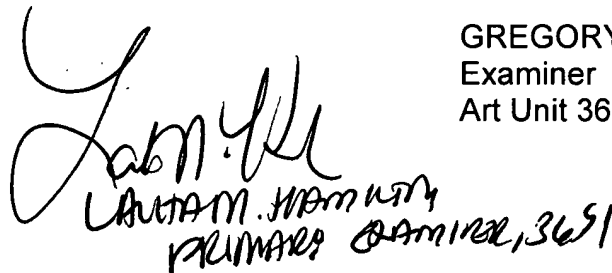 GREGORY
Examiner
Art Unit 36
M. HAMILTON
PRIMARY EXAMINER, 3691